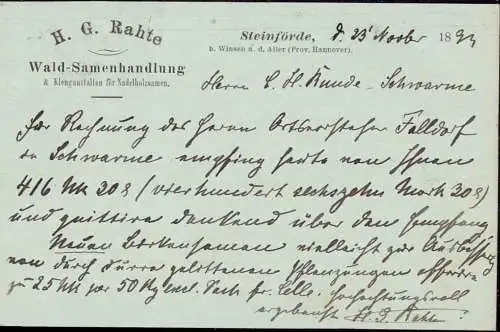 H. G. Rahte
Wald-Samenhandlung
& Klenganstalten für Nadelholzsamen.
Steinförde, d. 25 Novbr 1893
b. Winsen a. d. Aller (Prov. Hannover).
Herrn C. H. Kunde - Schwarme
Für Rechnung des Herrn Ortsvorsteher Falldorf
in Schwarme empfing heute von Ihnen
416 Mk 20 ₰ (vierhundert sechszehn Mark 20 ₰)
und quittire dankend über den Empfang
Neuen Birkensamen vielleicht zur Ausbesserung
von durch Dürre gelittenen Pflanzungen offerire
zu 25 Mk per 50 Kg excl. Sack fr. Celle. Hochachtungsvoll
ergebenst H. G. Rahte